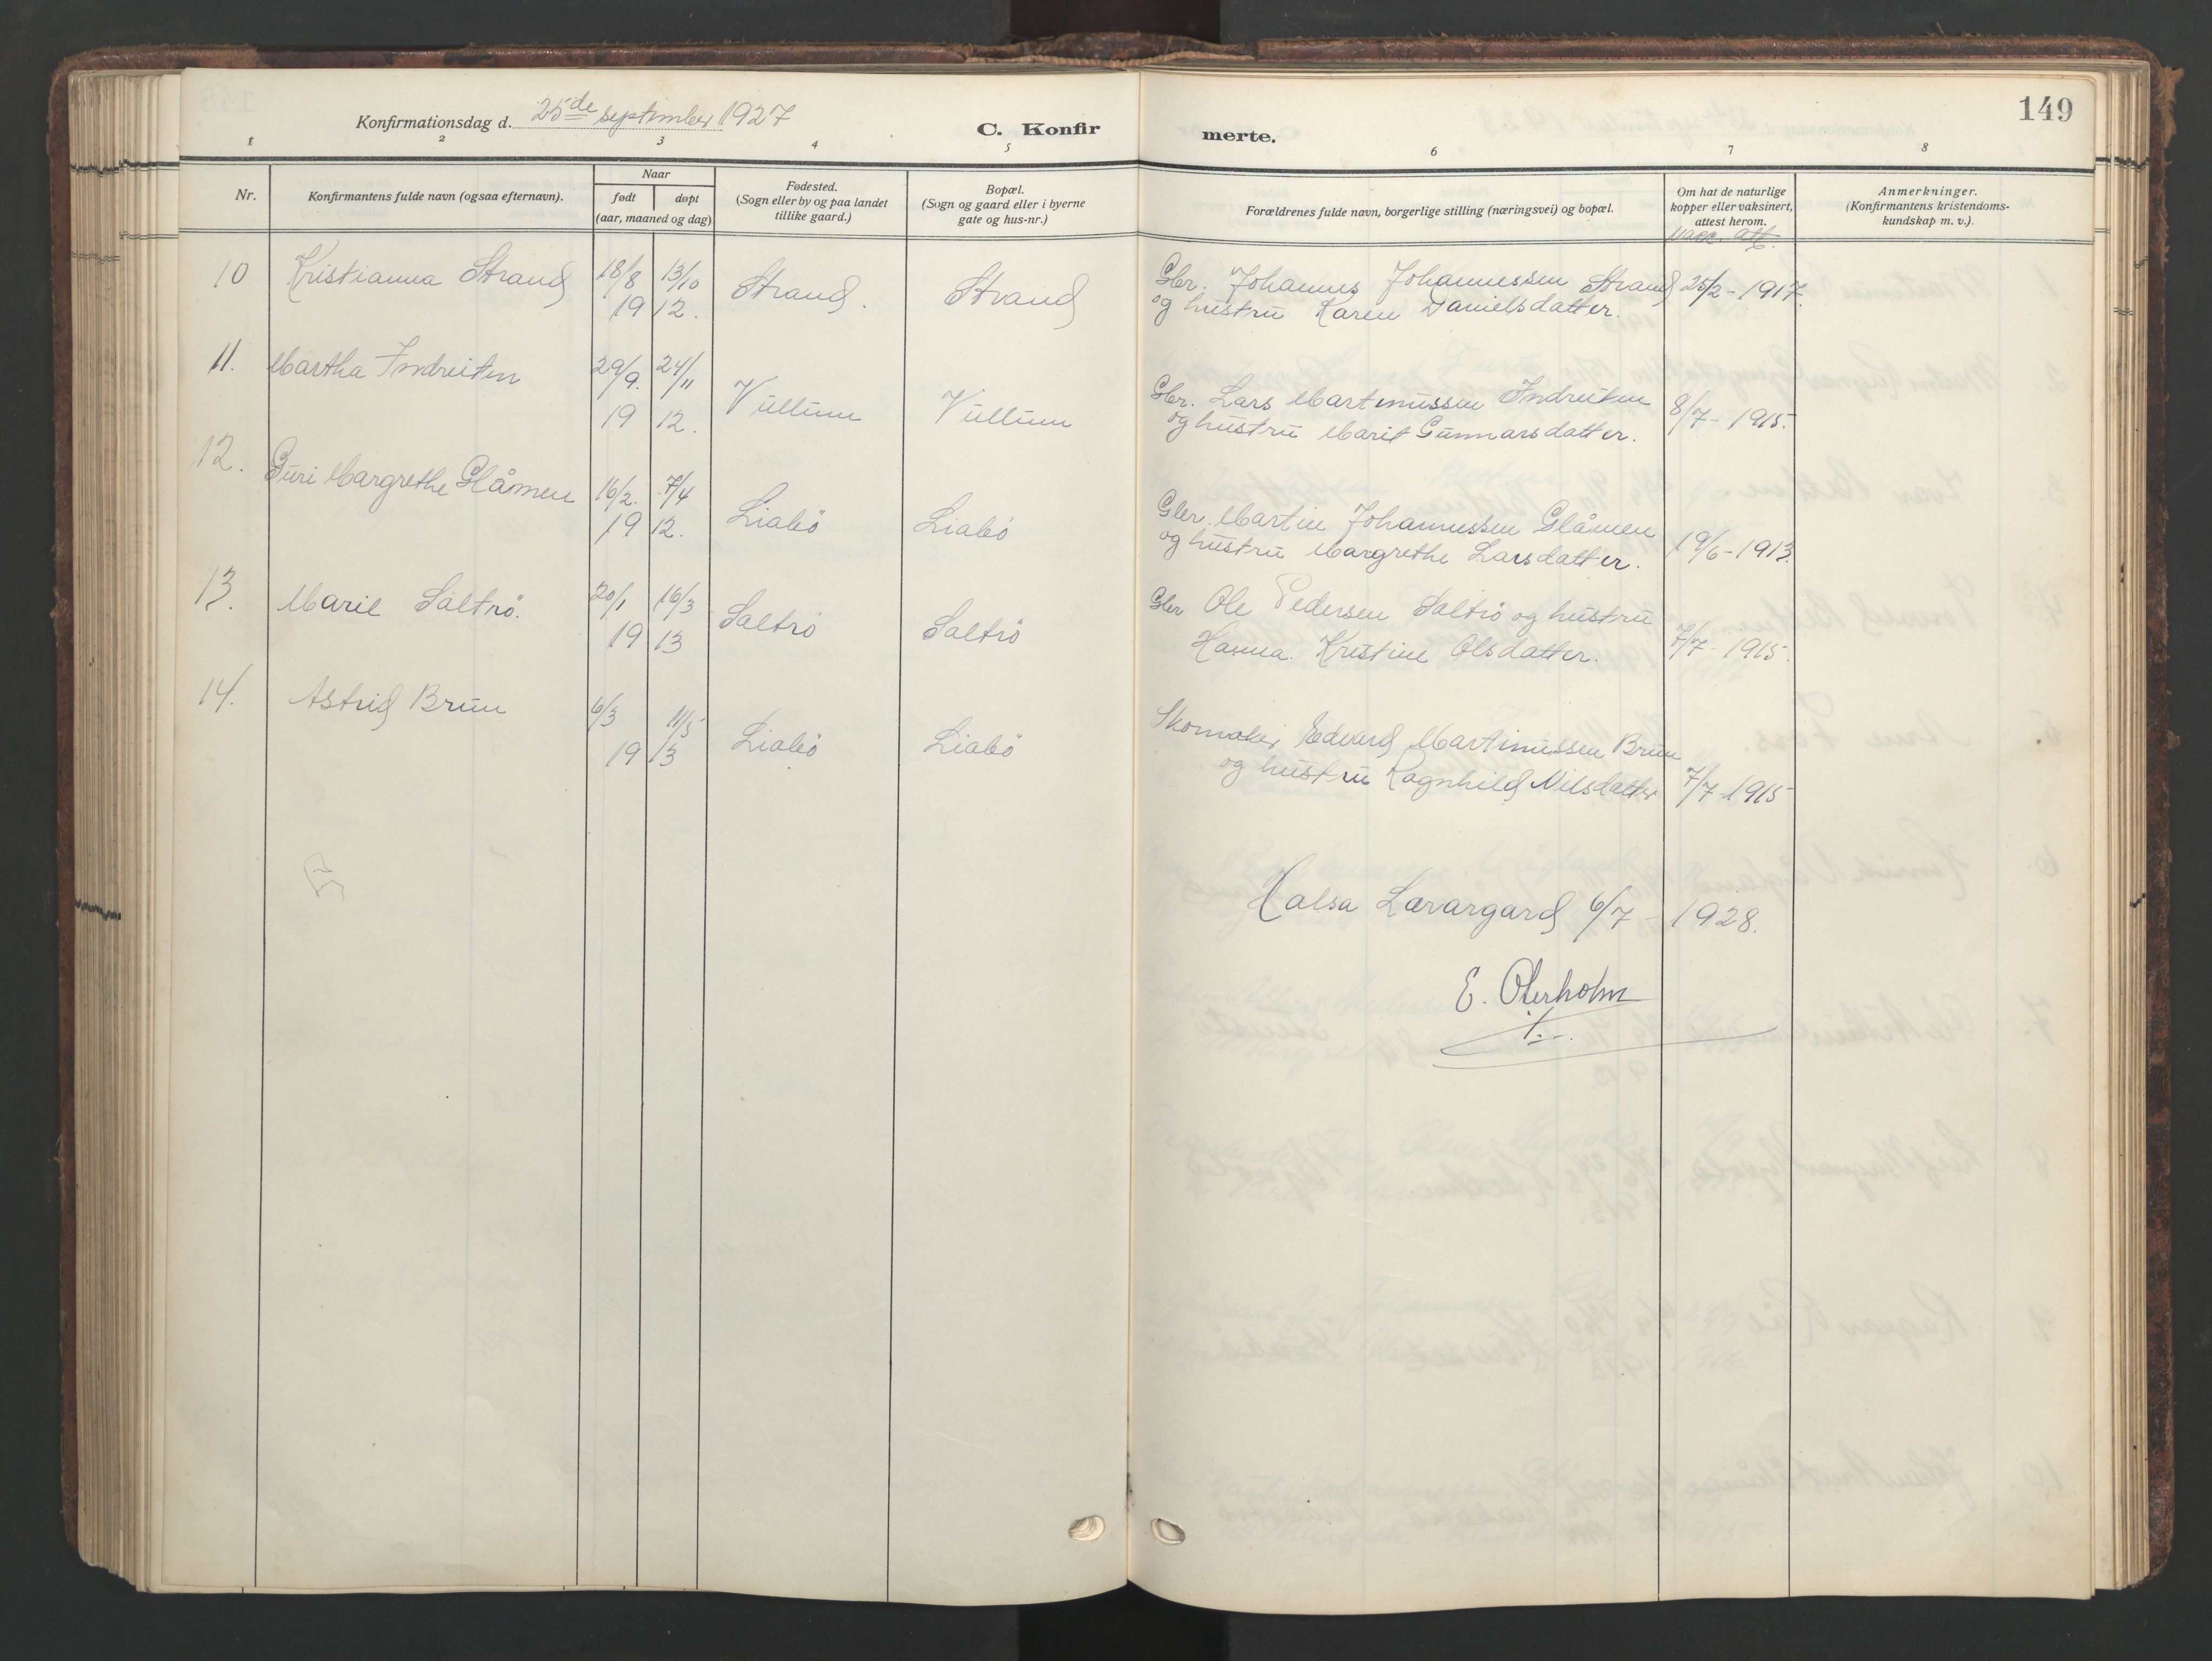 149
Konfirmationsdag d. 25de september 1927
C. Konfirmerte.
1 2 3 4 5 6 7 8
Nr.
Konfirmantens fulde navn (ogsaa efternavn).
Naar
født døpt
(aar, maaned og dag)
Fødested.
(Sogn eller by og paa landet
tillike gaard.)
Bopæl.
(Sogn og gaard eller i byerne
gate og hus-nr.)
Forældrenes fulde navn, borgerlige stilling (næringsvei) og bopæl.
Om hat de naturlige
kopper eller vaksinert,
attest herom.
Vacc. att.
Anmerkninger.
(Konfirmantens kristendoms-
kundskap m. v.).
10 Kristianna Strand 18/8 13/10 Strand. Strand Gbr. Johannes Johannessen Strand 25/2-1917.
19 12. og hustru Karen Danielsdatter.
11. Martha Indreiten 29/9. 24/11
19 12. Vullum Vullum Gbr. Lars Martinussen Indreiten 8/7-1915.
og hustru Marit Gunnarsdatter.
12. Guri Margrethe Glåmen 16/2. 7/4
19 12. Liabö Liabö Gbr. Martin Johannessen Glåmen 19/6-1913.
og hustru Margrethe Larsdatter.
13. Marie Saltrö. 20/1 16/3 Saltrö Saltrö Gbr Ole Pedersen Saltrö og hustru
19 13 Hanna Kristine Olsdatter. 7/7-1915.
14. Astrid Brun 6/3 11/5 Skomaker Edvard Martinussen Brun
19 13 Liabö Liabö og hustru Ragnhild Nilsdatter 7/7-1915
Halsa Lærargard 6/7-1928.
E. Oterholm